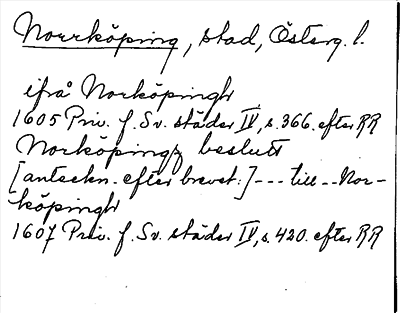 Norrköping, stad, Österg. l.
ifrå Norköpingh
1605 Priv. f. Sv. städer IV, s. 366. efter RR
Norköpingz beslutt
[anteckn. efter brevet.] --- till -- Nor-
köpingh
1607 Priv. f. Sv. städer IV, s. 420. efter RR